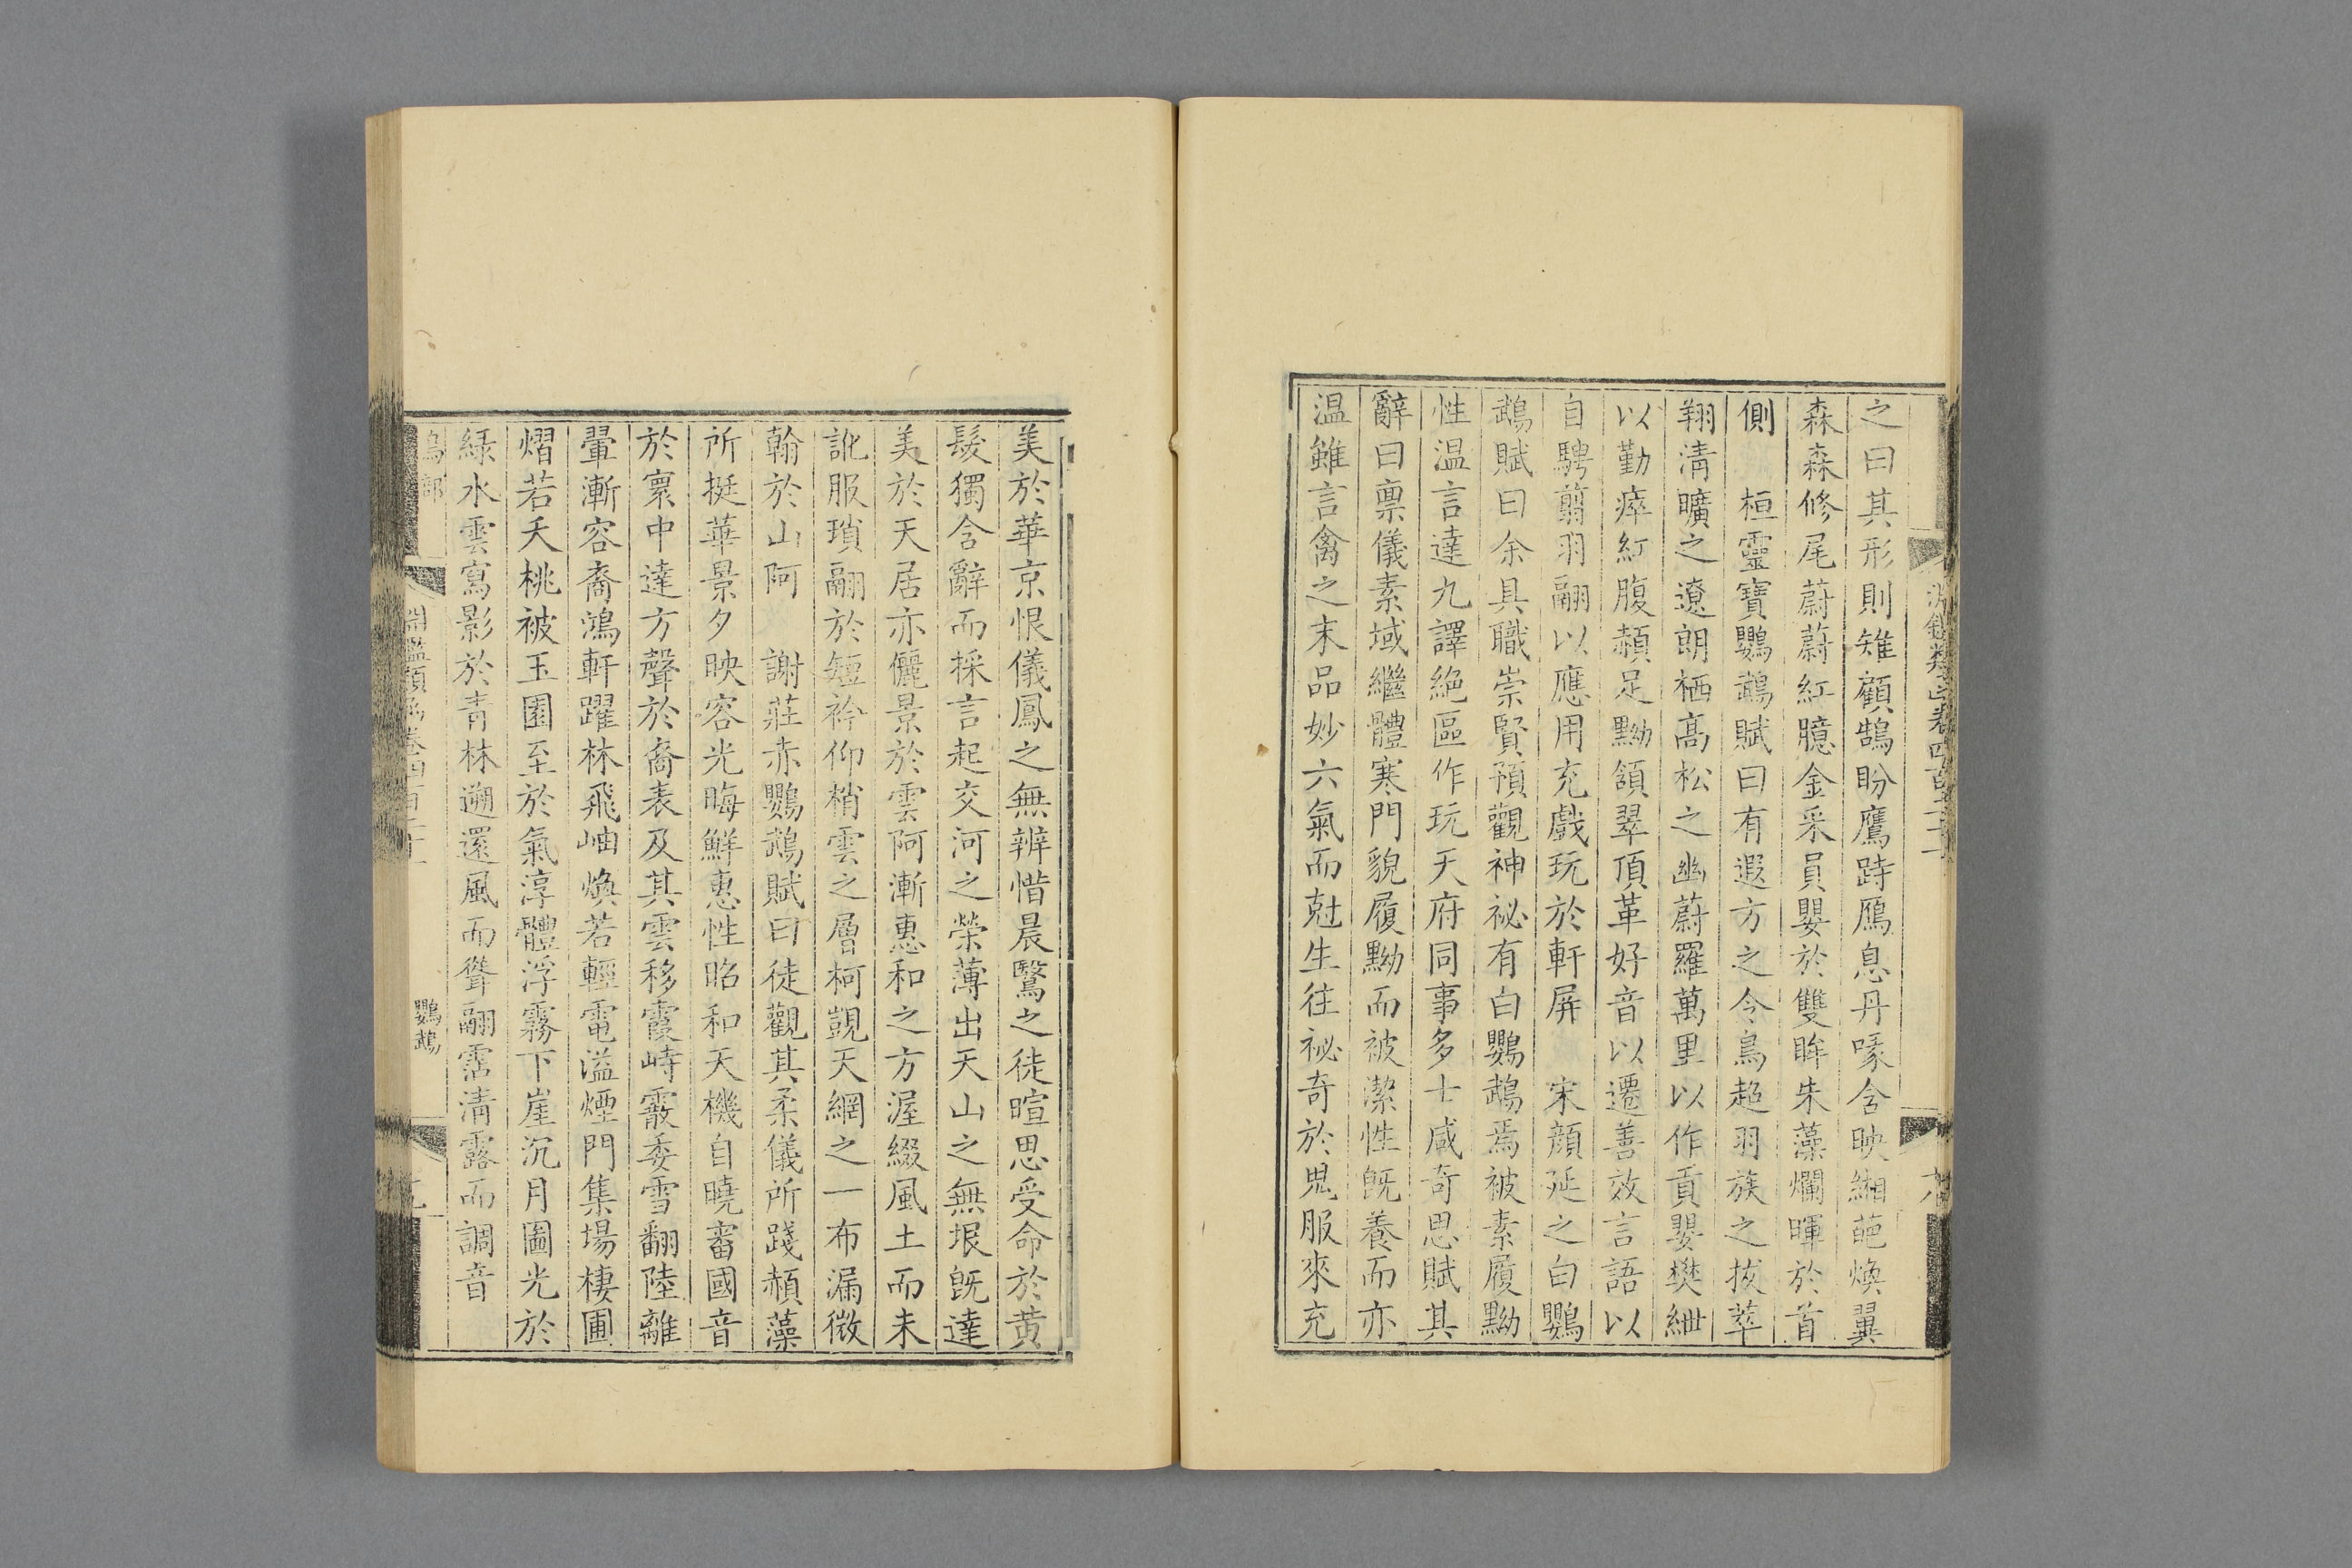 之曰其形則雉顧鵠盼鷹跱鴈息丹喙含映緗葩煥翼
森森修尾蔚蔚紅臆金采員嬰於雙眸朱藻爛暉於首
側　桓靈寶鸚鵡賦曰有遐方之令鳥超羽族之拔萃
翔清曠之遼朗栖高松之幽蔚羅萬里以作貢嬰樊紲
以勤瘁紅腹赬足黝頷翠頂革好音以遷善效言語以
自騁翦羽翮以應用充戲玩於軒屏　宋顏延之白鸚
鵡賦曰余具職崇賢預觀神祕有白鸚鵡焉被素履黝
性温言達九譯絶區作玩天府同事多士咸奇思賦其
辭曰禀儀素域繼體寒門貌履黝而被潔性旣養而亦
温雖言禽之末品妙六氣而尅生往祕奇於鬼服來充
美於華京恨儀鳳之無辨惜晨鷖之徒暄思受命於黄
髮獨含辭而採言起交河之榮薄出天山之無垠旣達
美於天居亦儷景於雲阿漸惠和之方渥綴風土而未
訛服瑣翮於短衿仰梢雲之層柯覬天網之一布漏微
翰於山阿　謝莊赤鸚鵡賦曰徒觀其柔儀所踐赬藻
所挺華景夕映容光晦鮮惠性昭和天機自曉審國音
於寰中達方聲於裔表及其雲移霞峙霰委雪翻陸離
翬漸容裔鴻軒躍林飛岫煥若輕電溢煙門集場棲圃
熠若夭桃被玉園至於氣淳體浮霧下崖沉月圖光於
緑水雲寫影於青林遡還風而聳翮霑清露而調音
鳥部　淵鑑類函卷四百二十一　鸚鵡